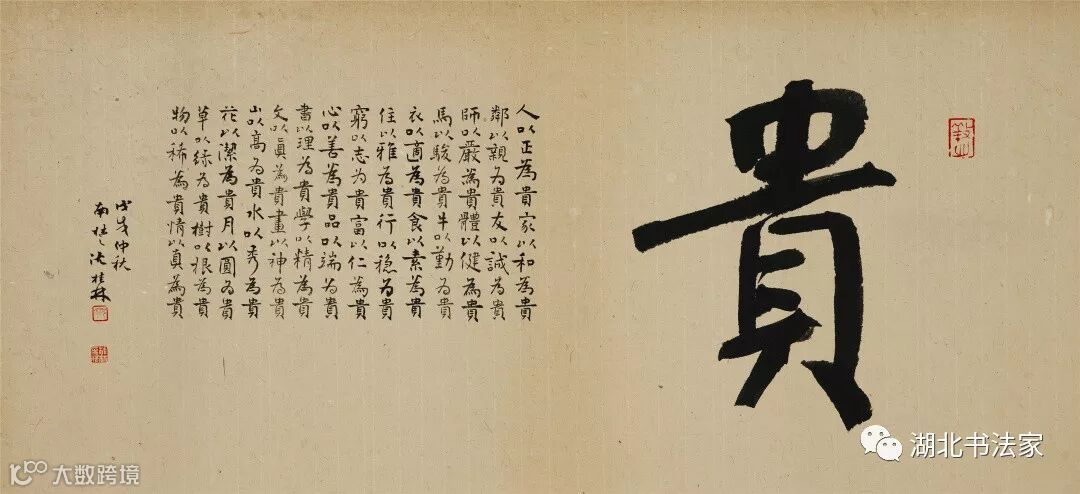 貴
人以正為貴家以和為貴
鄰以親为貴友以誠為貴
師以嚴為貴體以健為貴
馬以駿為貴牛以勤为貴
衣以適為貴食以素為貴
住以雅為貴行以稳为貴
窮以志为貴富以仁為貴
心以善為貴品以端为貴
書以理為貴學以精為貴
文以眞為貴畫以神為貴
山以高为貴水以秀為貴
花以潔為貴月以圓为貴
草以緑为貴樹以根為貴
物以稀為貴情以真為貴
戊戌仲秋
桂林
湖北书法家
大数跨境